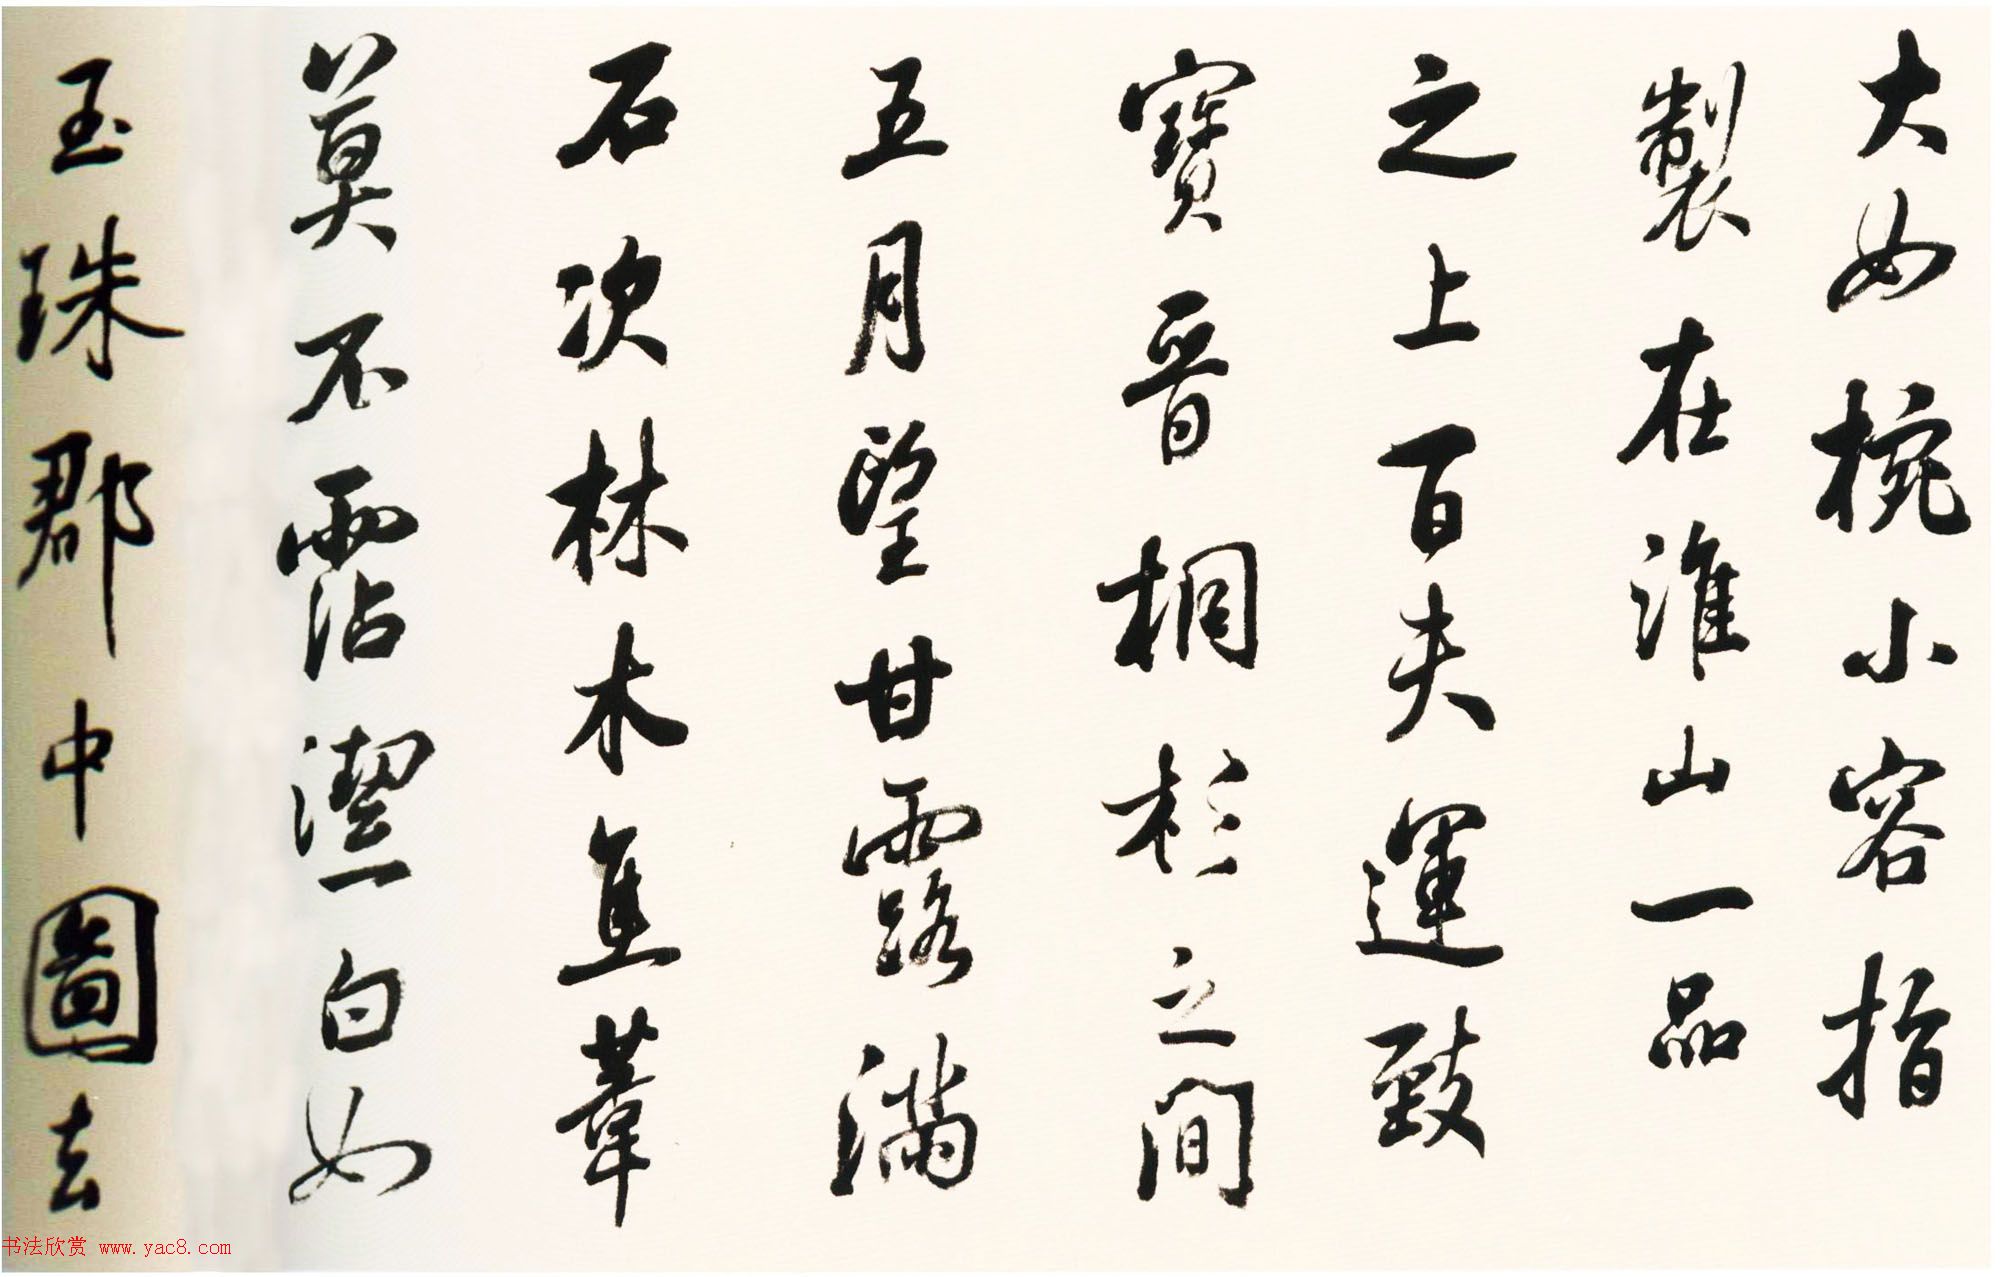 大如椀小容指
製在淮山一品
之上百夫運致
寶晉桐杉之間
五月望甘露滿
石次林木焦葦
莫不霑潔白如
玉珠郡中圖去
书法欣赏 www.yac8.com